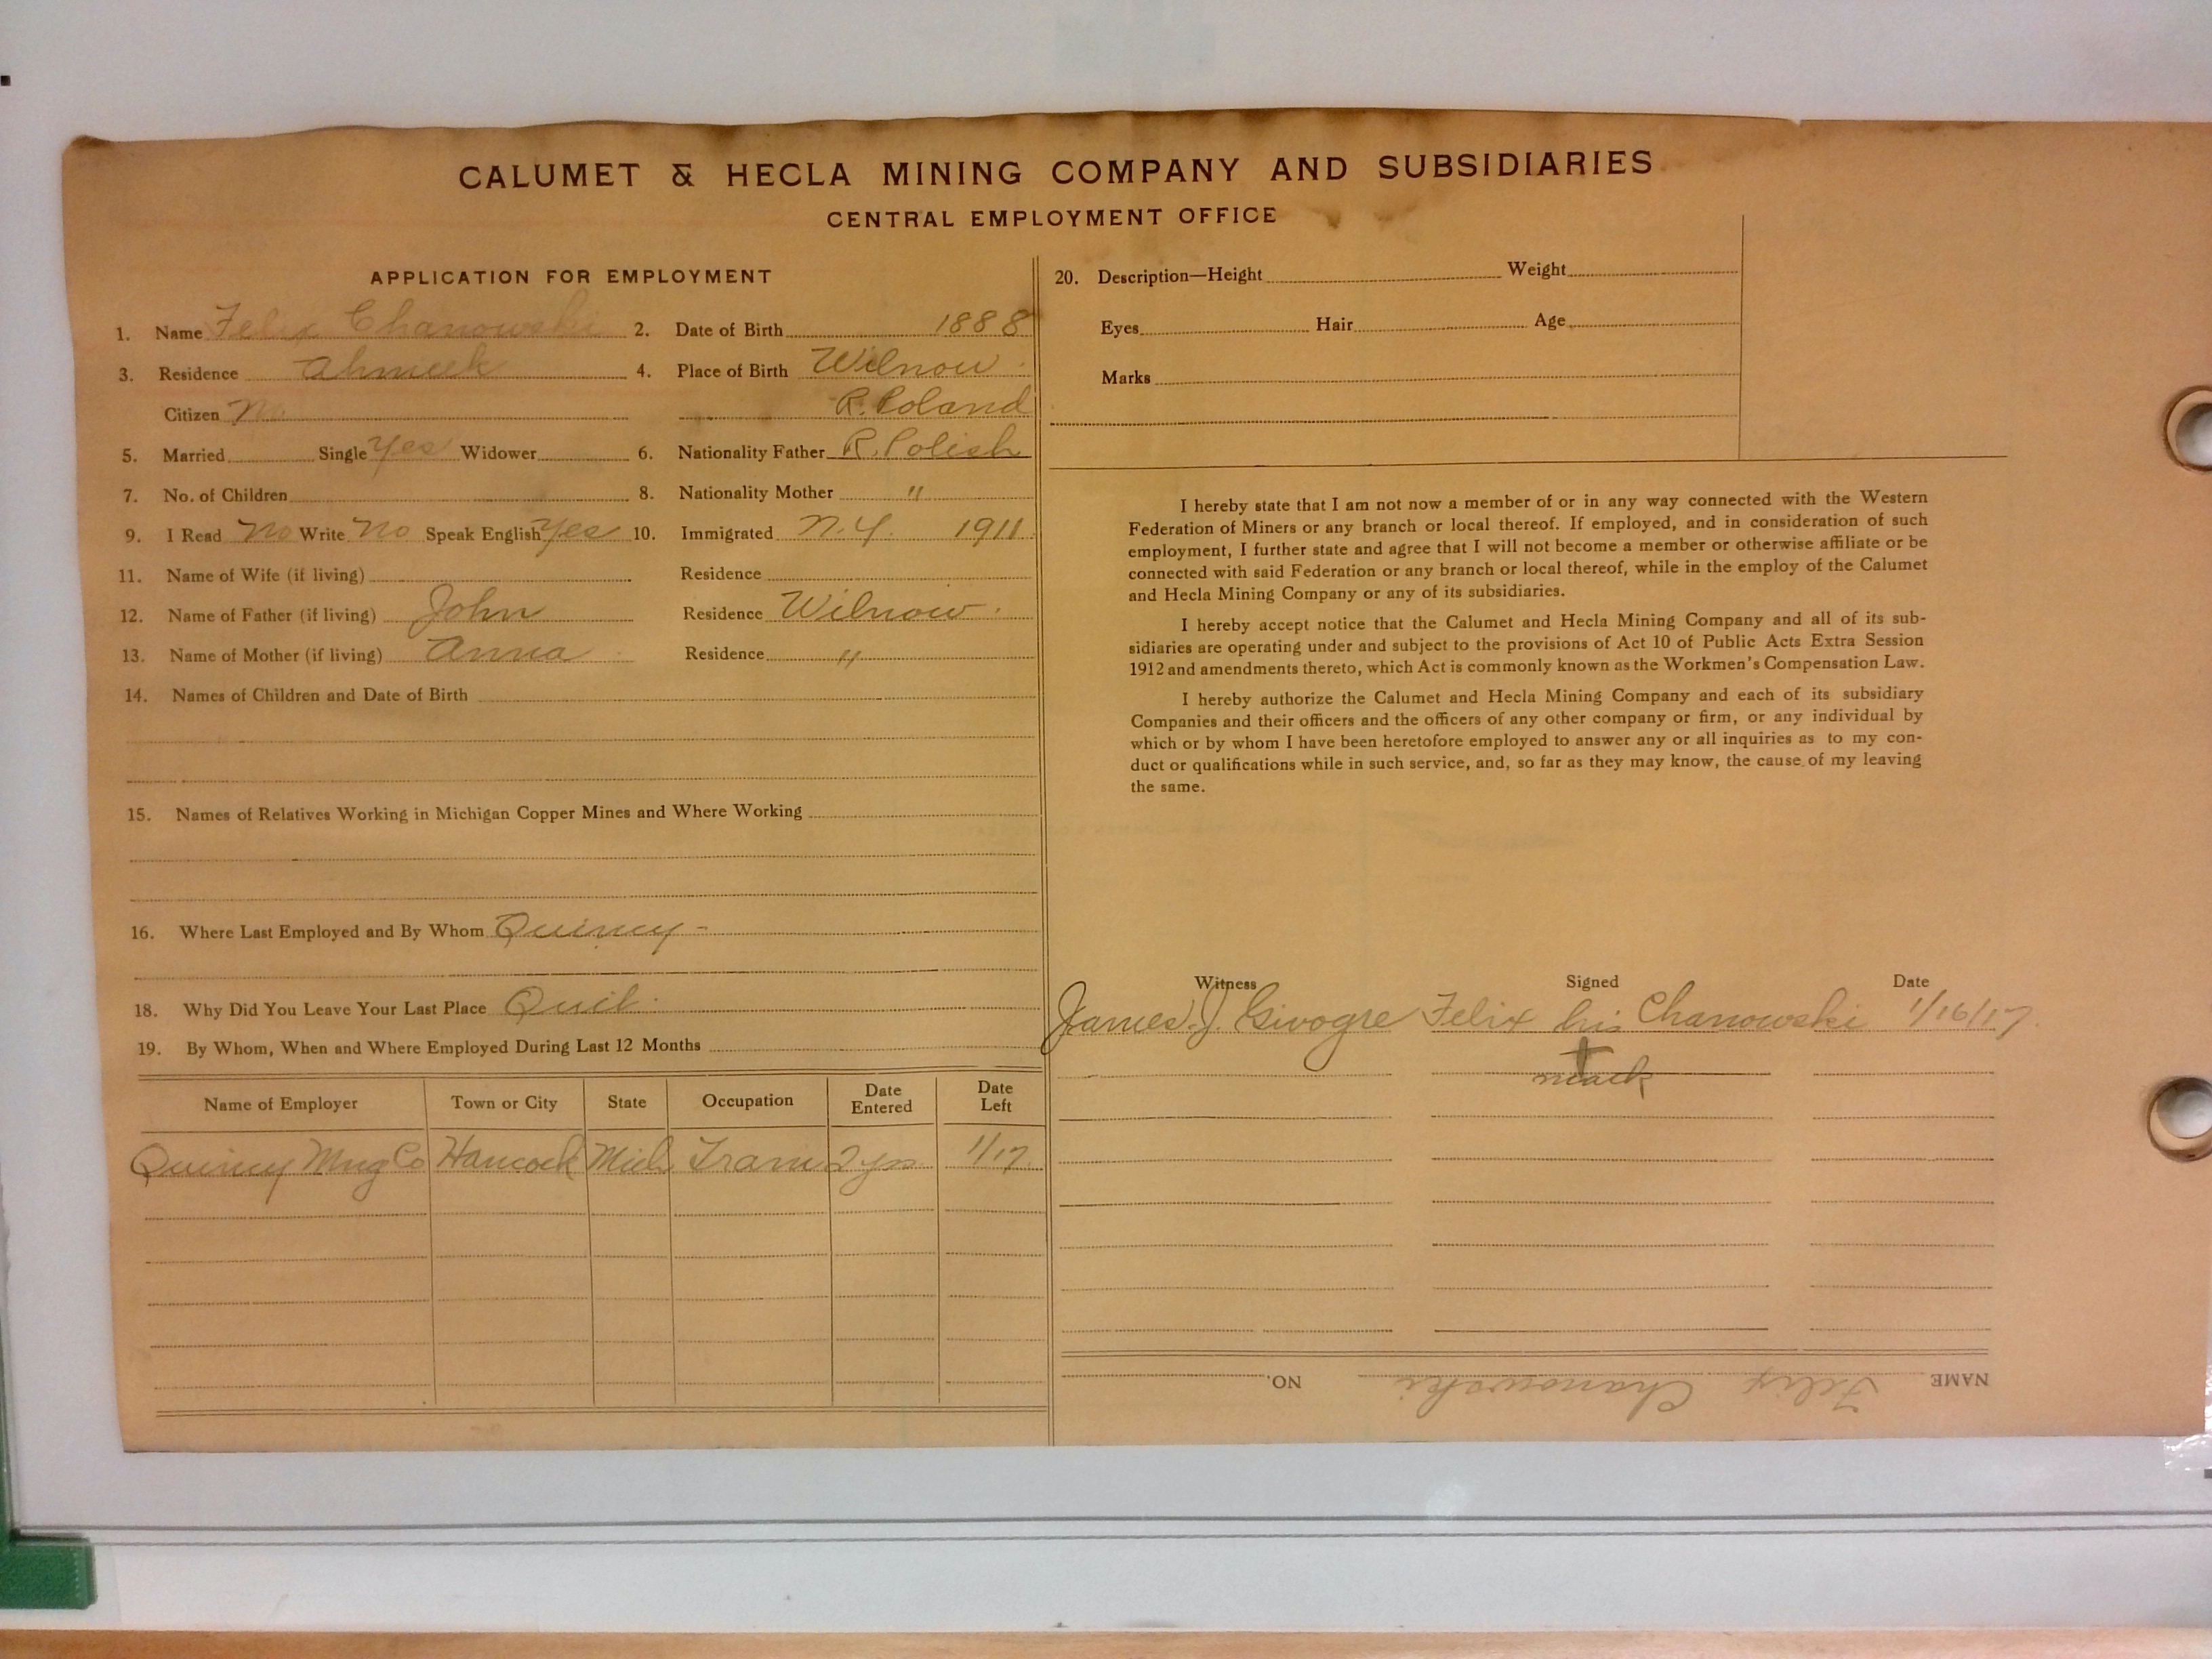 CALUMET & HECLA MINING COMPANY AND SUBSIDIARIES
CENTRAL EMPLOYMENT OFFICE
APPLICATION FOR EMPLOYMENT
1. Name Felix Chanowski 2. Date of Birth 1888
3. Residence Ahmeek 4. Place of Birth Wilnow
Citizen No R. Poland
5. Married Single Yes Widower 6. Nationality Father R. Polish
7. No. of Children 8. Nationality Mother "
9. I Read No Write No Speak English Yes 10. Immigrated N.Y. 1911
11. Name of Wife (if living) Residence
12. Name of Father (if living) John Residence Wilnow
13. Name of Mother (if living) Anna Residence "
14. Names of Children and Date of Birth
15. Names of Relatives Working in Michigan Copper Mines and Where Working
16. Where Last Employed and By Whom Quincy -
18. Why Did You Leave Your Last Place Quit
19. By Whom, When and Where Employed During Last 12 Months
Name of Employer Town or City State Occupation Date Entered Date Left
Quincy Mng Co Hancock Mich Tram 2 yrs 1/17
20. Description—Height Weight
Eyes Hair Age
Marks
I hereby state that I am not now a member of or in any way connected with the Western
Federation of Miners or any branch or local thereof. If employed, and in consideration of such
employment, I further state and agree that I will not become a member or otherwise affiliate or be
connected with said Federation or any branch or local thereof, while in the employ of the Calumet
and Hecla Mining Company or any of its subsidiaries.
I hereby accept notice that the Calumet and Hecla Mining Company and all of its sub-
sidiaries are operating under and subject to the provisions of Act 10 of Public Acts Extra Session
1912 and amendments thereto, which Act is commonly known as the Workmen's Compensation Law.
I hereby authorize the Calumet and Hecla Mining Company and each of its subsidiary
Companies and their officers and the officers of any other company or firm, or any individual by
which or by whom I have been heretofore employed to answer any or all inquiries as to my con-
duct or qualifications while in such service, and, so far as they may know, the cause of my leaving
the same.
Witness Signed Date
James J. Felix his Chanowski 1/16/17
mark
NAME Felix Chanowski NO.